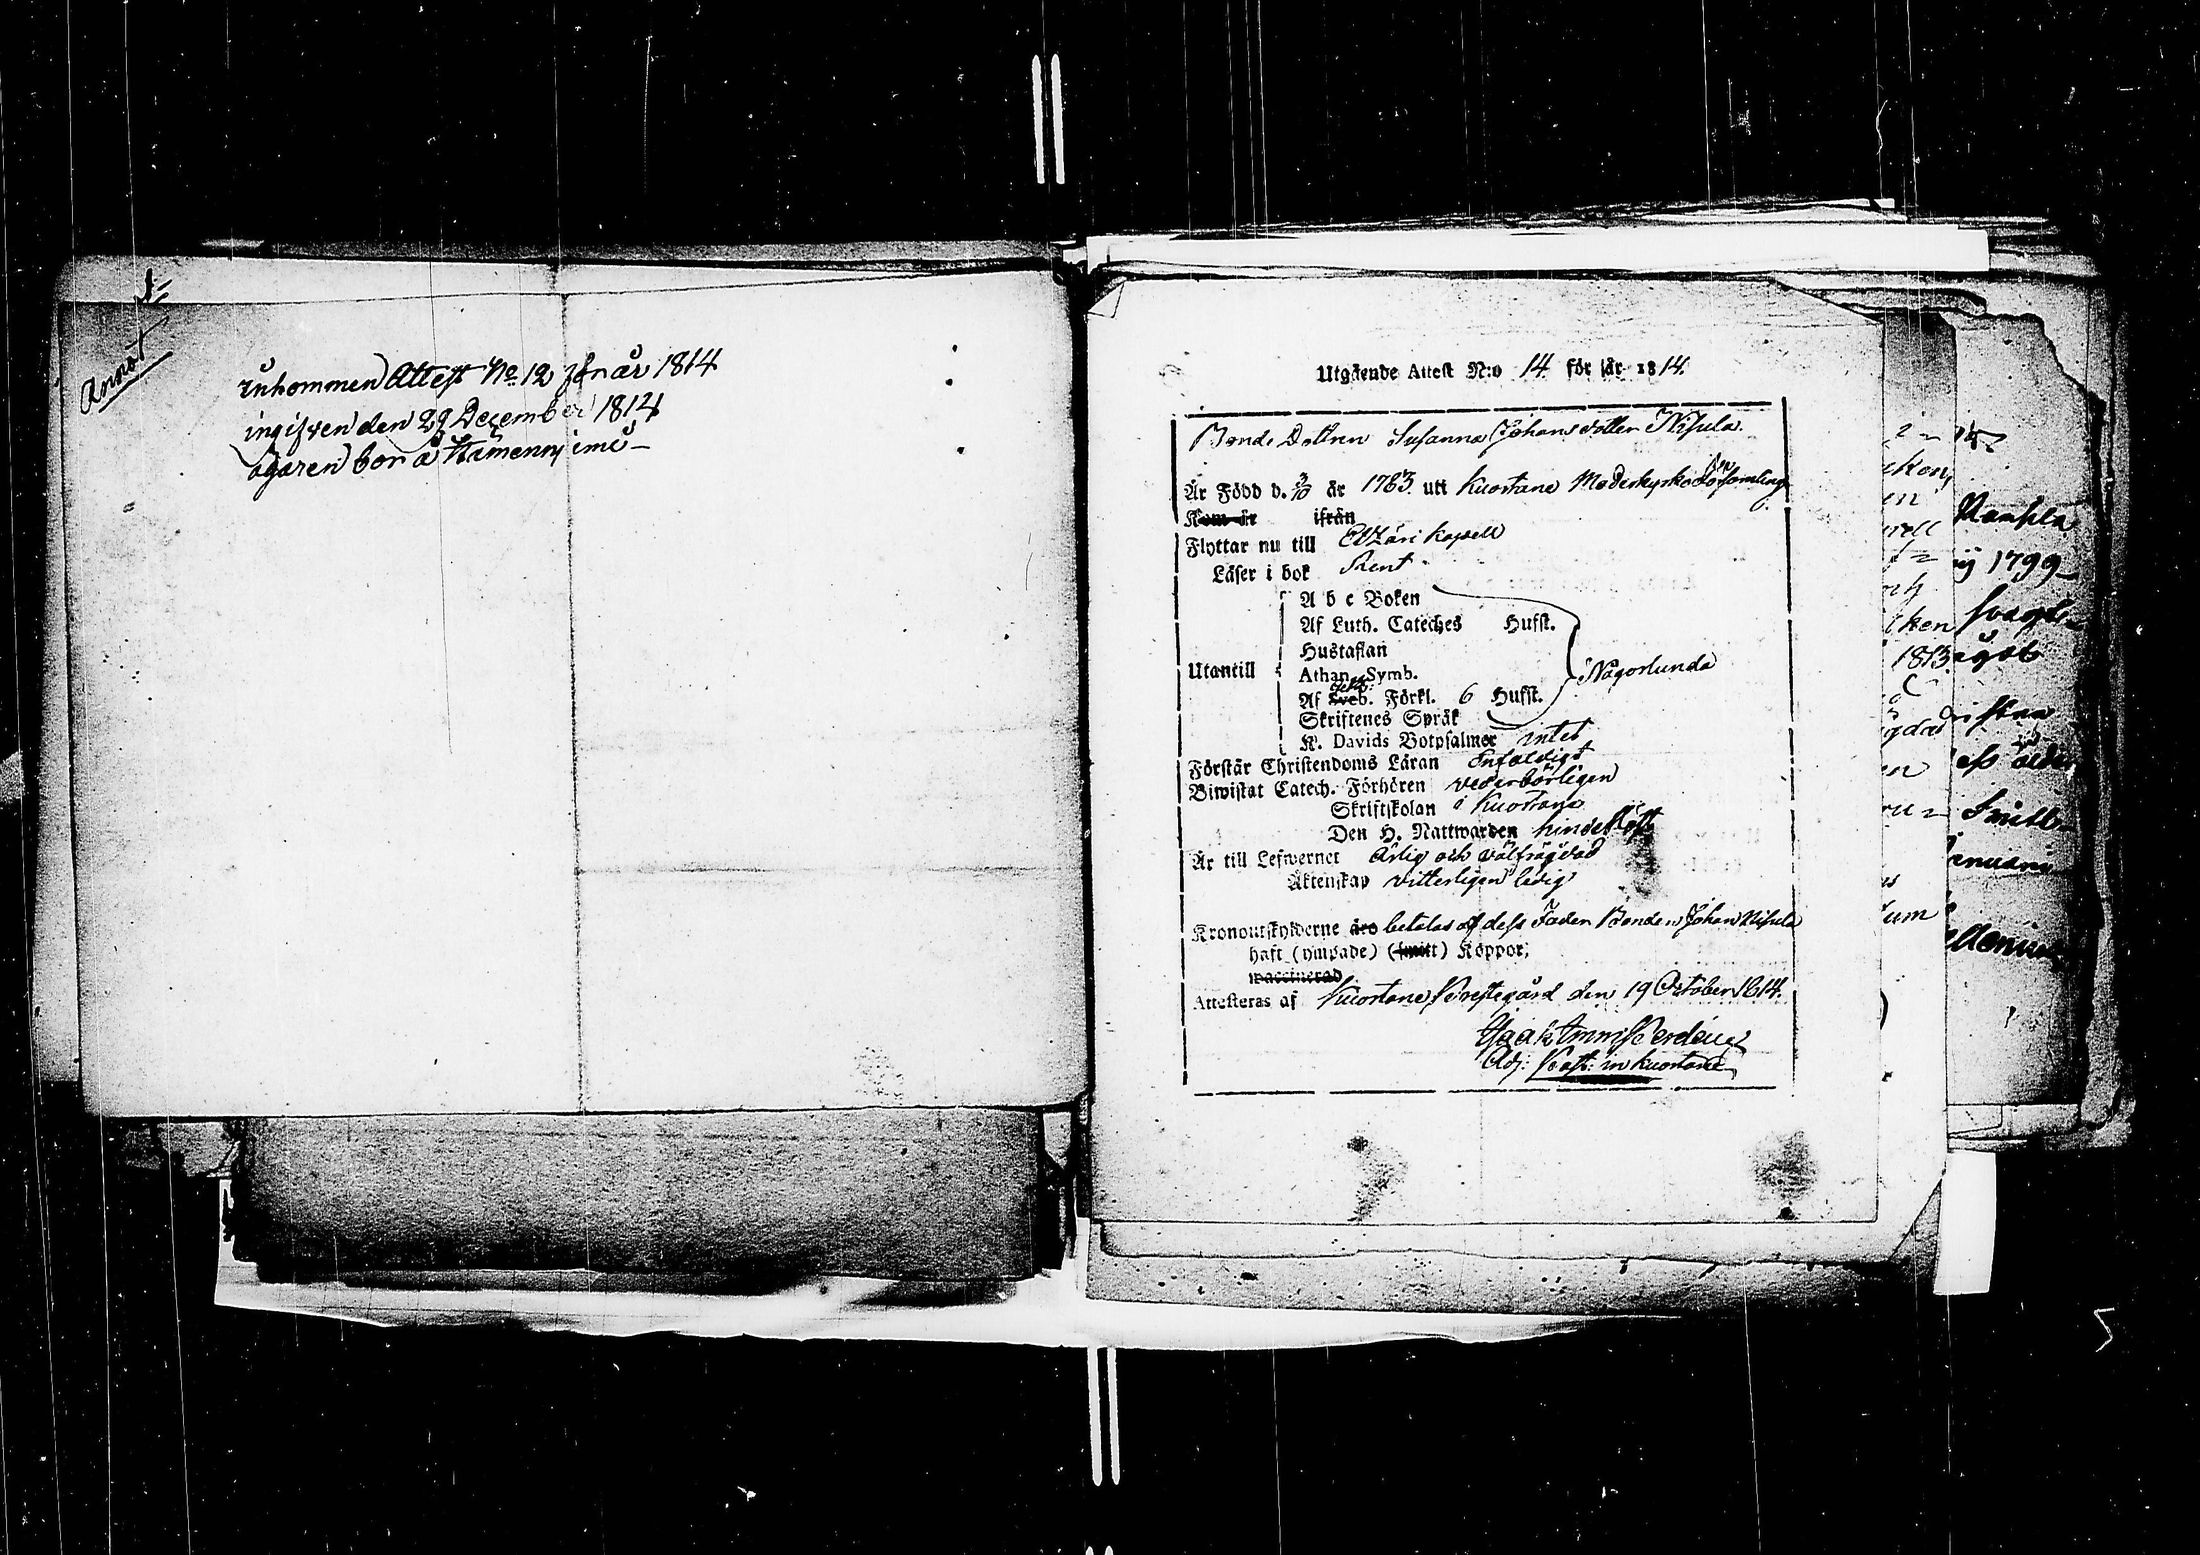 Annot
inkommen Attest No 12 för år 1814
ingifven den 29 December 1814
ägaren bor å Kämennjemi
Utgående Attest N:o 14 för år 1814.
Bonde Dottren Susanna Johansdotter Nisula
Är Född d. 3/10 år 1783 uti Kuortane Moderkyrko Församling
Kom år ifrån
Flyttar nu till Etzäri Kapell
Läser i bok Rent
A b c Boken
Af Luth. Cateches Hufst.
Hustaflan
Utantill Athan. Symb. Någorlunda
Af Sveb. Förkl. 6 Hufst.
Skriftenes Språk
K. Davids Botpsalmer intet
Förstår Christendoms Läran Enfaldigt
Biwistat Catech. Förhören vederbörligen
Skriftskolan i Kuortane
Den H. Nattwarden
Är till Lefwernet Ärlig och välfrägdad
Äktenskap vitterligen ledig
Kronoutskylderne äro betalas af dess Fader Bonden Johan Nisula
haft (ympade) (smitt) Koppor,
waccinerad
Attesteras af Kuortane Prestegård den 19 October 1814.
Adj: Past: in Kuortane
1799
1813